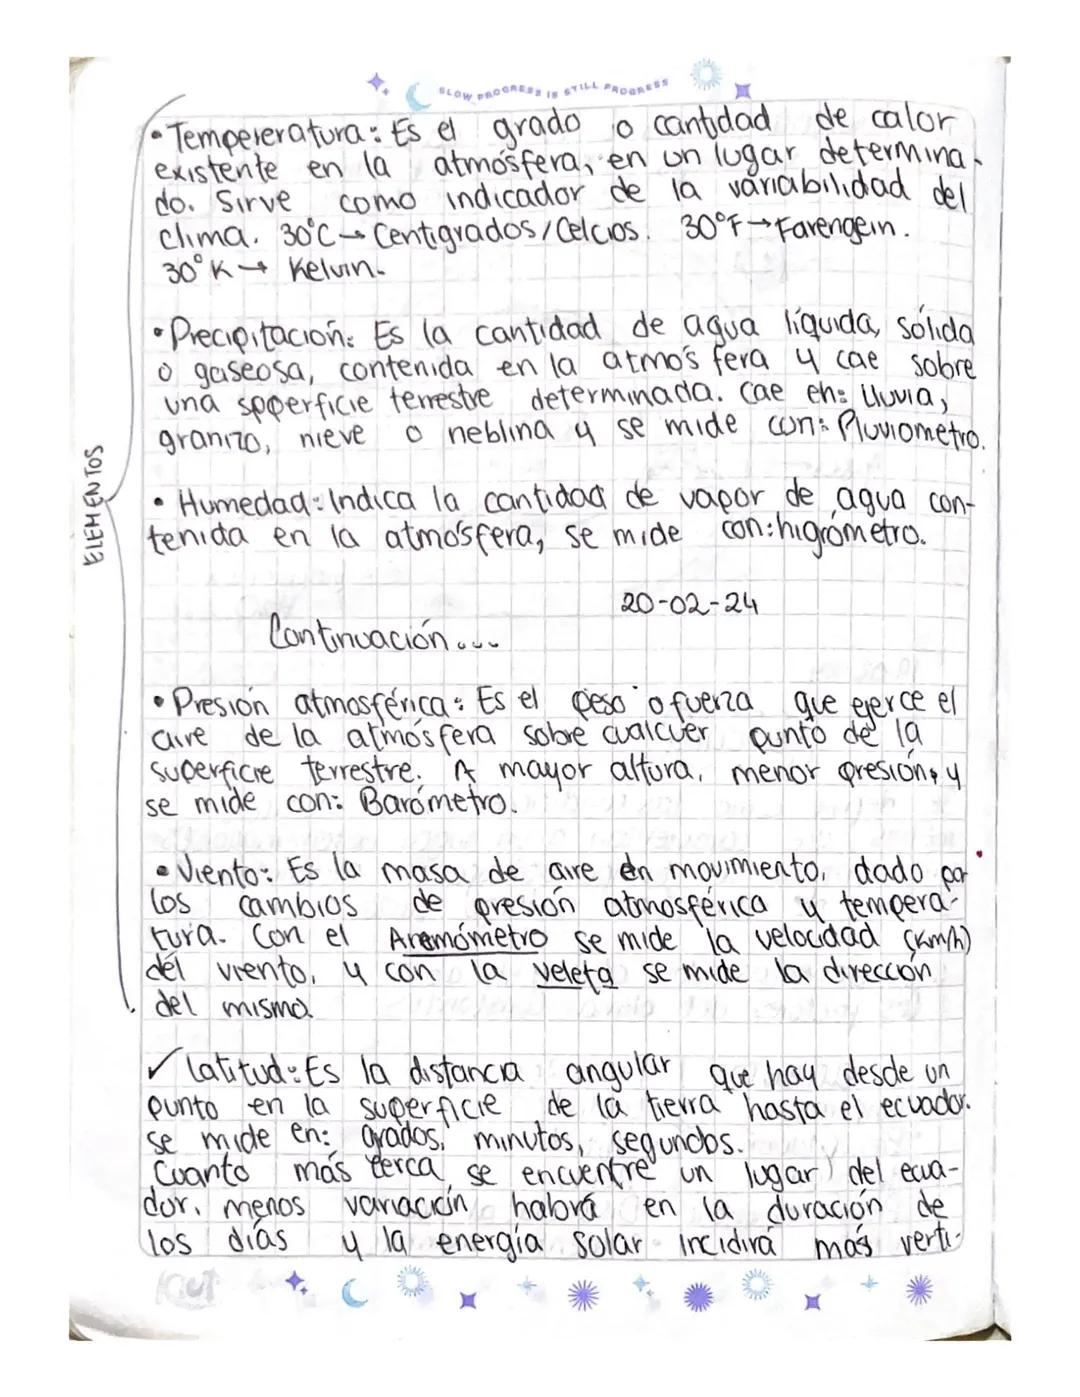 SLOW PROGRESS IS STILL PROGRESS
• Tempereratura: Es el grado o cantidad de calor
existente en la atmósfera, en un lugar determina-
do. Sirve como indicador de la variabilidad del
clima. 30°C → Centigrados/Celcios. 30°F → Farengein.
30°K → Kelvin.
• Precipitación: Es la cantidad de agua líquida, sólida
o gaseosa, contenida en la atmósfera y cae sobre
una sperficie terrestre determinada. Cae en: lluvia,
granizo, nieve o neblina y se mide con: Pluviometro.
ELEMENTOS
• Humedad: Indica la cantidad de vapor de agua con-
tenida en la atmósfera, se mide con: higrómetro.
20-02-24
Continuación...
• Presión atmosférica: Es el peso o fuerza que ejerce el
aire de la atmósfera sobre cualcuer punto de la
superficie terrestre. A mayor altura, menor presión, y
se mide con: Barómetro.
• Viento: Es la masa de aire en movimiento, dado por
los cambios de presión atmosférica y tempera-
tura. Con el Anemómetro se mide la velocidad (Km/h)
del viento, y con la veleta se mide la dirección
del mismo.
✓ Latitud: Es la distancia angular que hay desde un
punto en la superficie de la tierra hasta el ecuador.
se mide en: grados, minutos, segundos.
Cuanto más cerca se encuentre un lugar del ecua-
dor, menos variación habrá en la duración de
los días y la energía solar incidirá más verti-